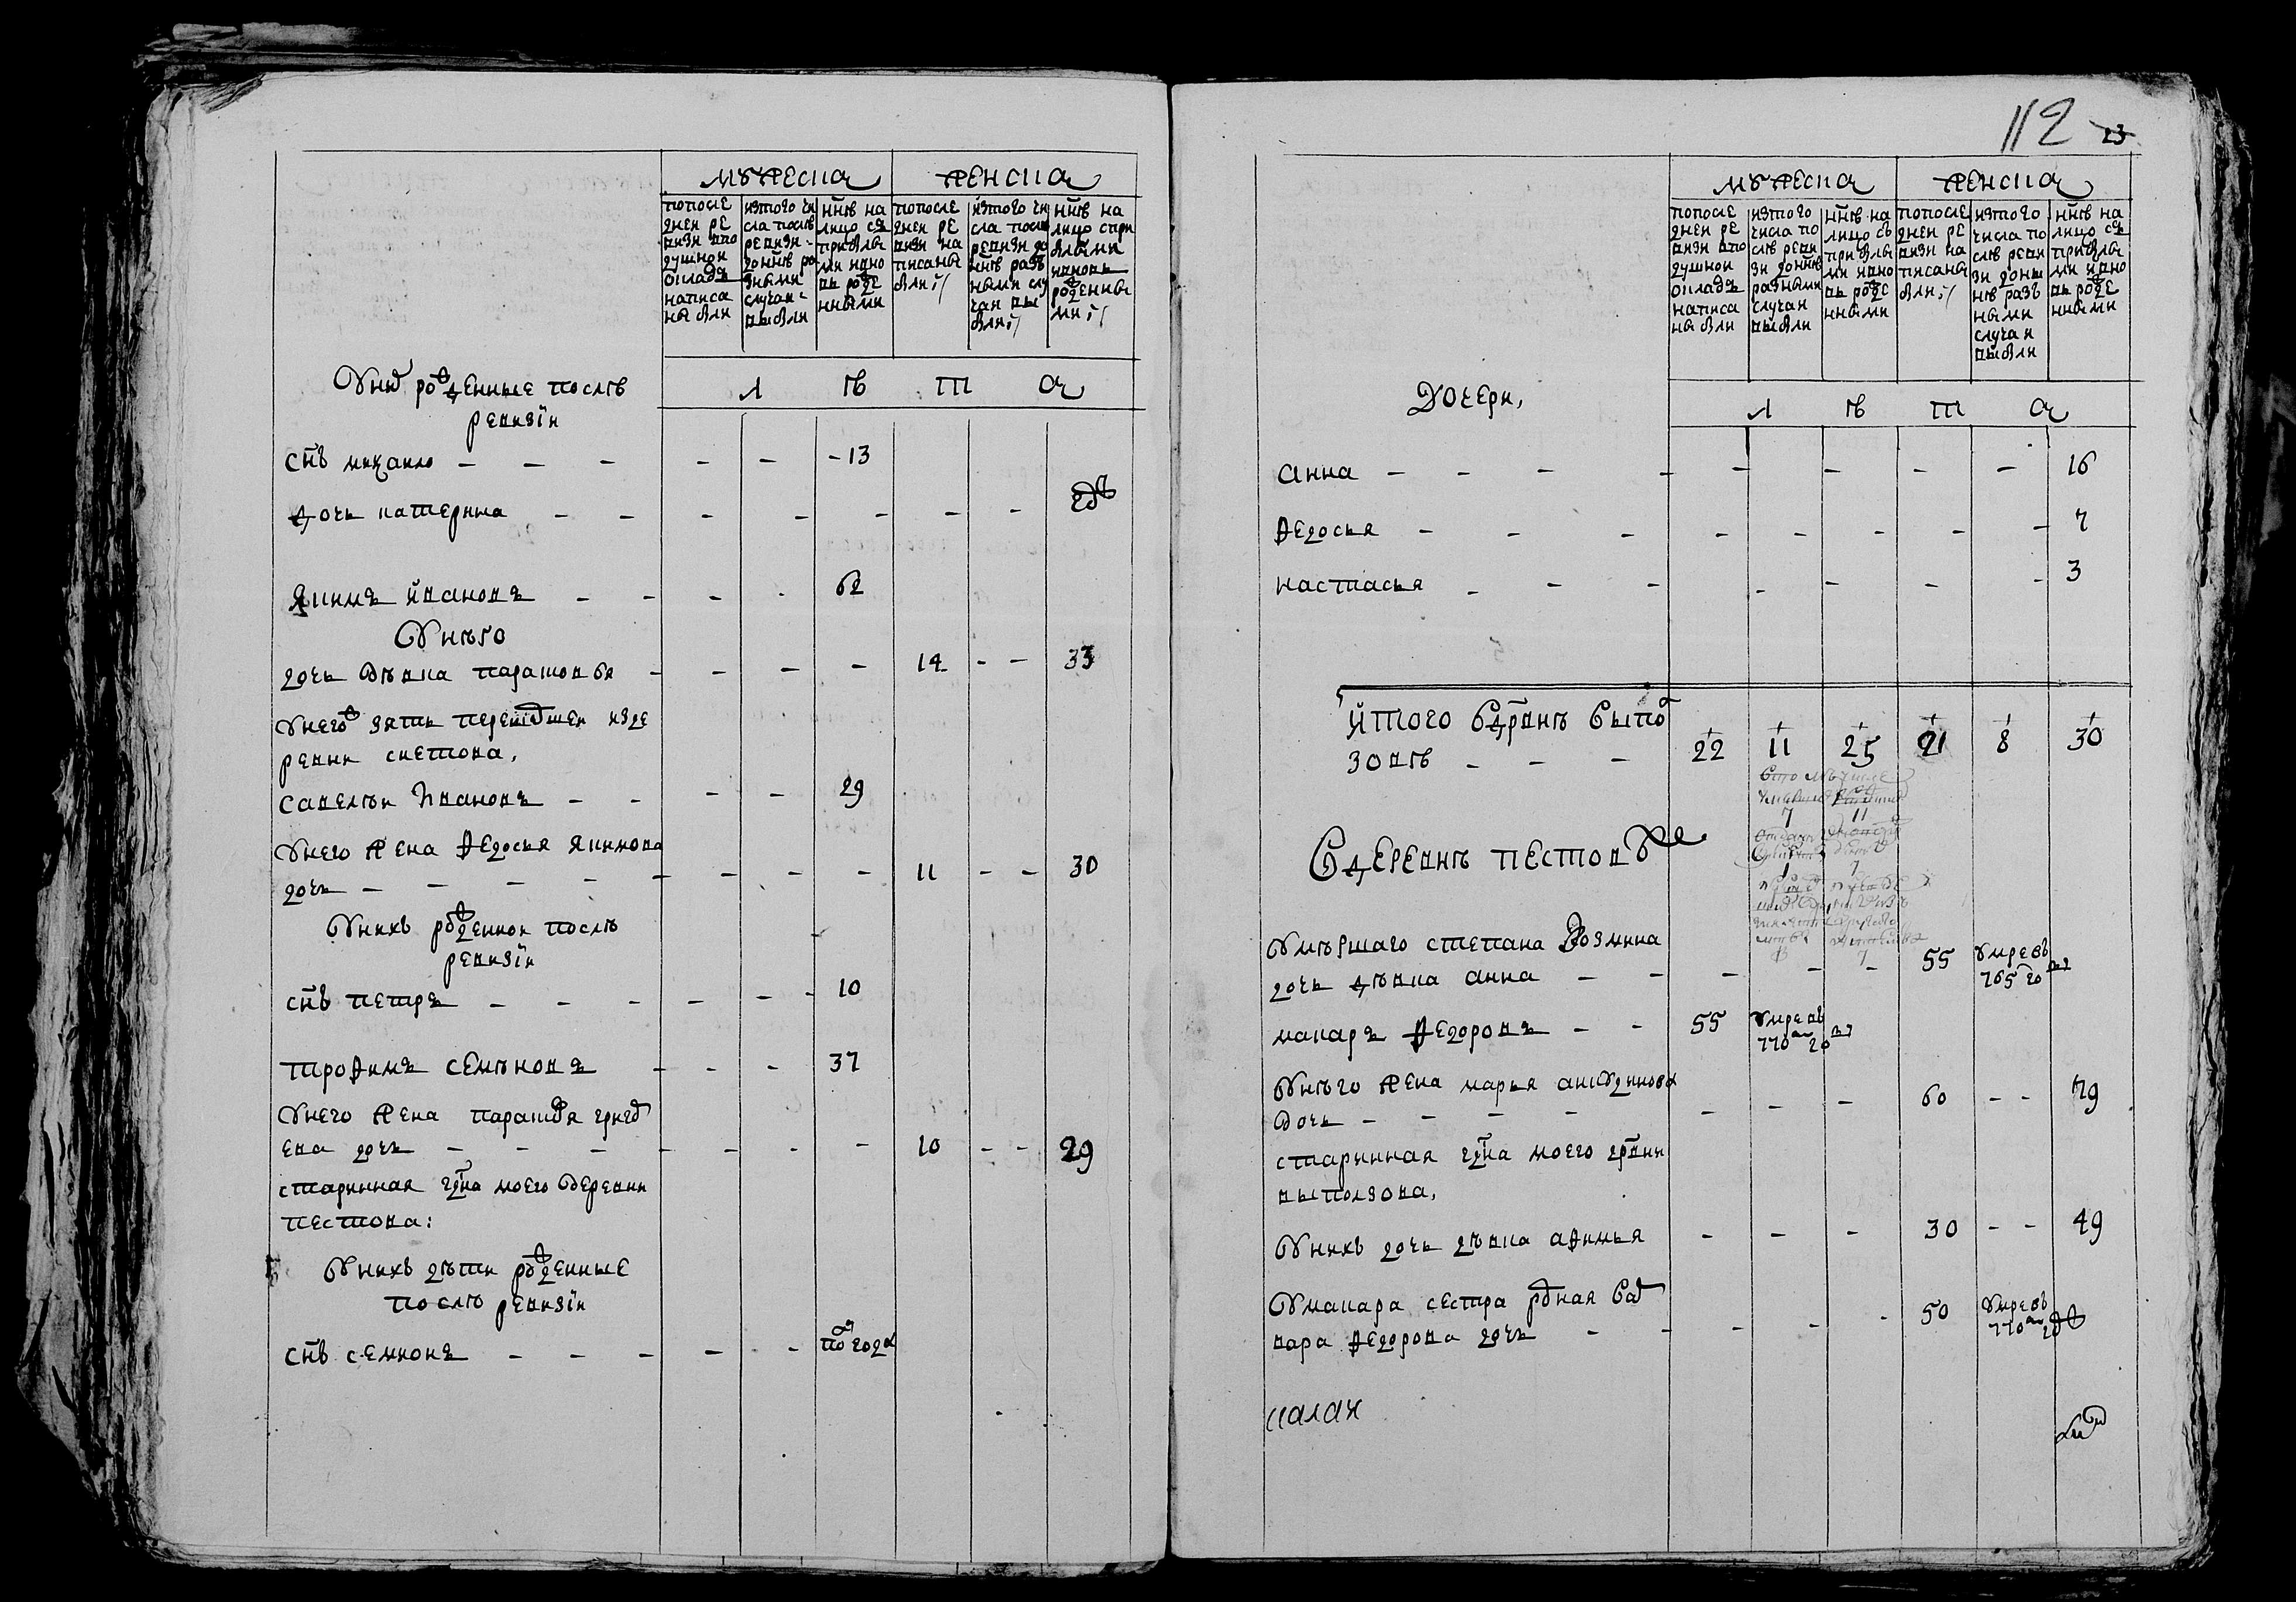 мужеска
женска
попосле
дней ре
визи впо
душной
окладъ
написа
ны были
изтого чи
сла послѣ
ревизи
донынѣ ра
зными
случаи
выбыли
ннѣ на
лицо съ
прибылы
ми ивно
вь рожде
нными
попосле
дней ре
визи на
писаны
были
изтого чи
сла после
ревизи до
ннѣ разъ
ными слу
чаи вы
были
ннѣ на
лицо спри
былыми
ивновь
рожденны
ми
л ѣ т а
у них рожденные послѣ
ревизïи
снъ михаило 13
дочь катерина
якимъ ивановъ 62
у нѣго
дочь дѣвка парасковья 14 33
унего зять перешедшей изде
ревни скетова,
савелѣй ивановъ 29
унего жена федосья якимова
дочь 11 30
у нихъ рожденной послѣ
ревизïи
снъ петръ 10
трофимъ семѣновъ 37
унего жена парасковья григорь
ева дочь 10 29
старинная гдна моего деревни
пестова:
у нихъ дѣти рожденные
послѣ ревизïи
снъ семионъ полгода
112 23
мужеска
женска
попосле
дней ре
визи впо
душной
окладъ
написа
ны были
изтого
числа по
слѣ реви
зи доннѣ
разными
случаи
выбыли
ннѣ на
лицо съ
прибылы
ми ивно
вь рожде
нными
попосле
дней ре
визи на
писаны
были
изтого
числа по
слѣ реви
зи доны
нѣ разъ
ными
случаи
выбыли
ннѣ на
лицо съ
прибылы
ми ивно
вь рожде
нными
дочери,
л ѣ т а
анна 16
федосья 7
настасья 3
итого вдрвнѣ выпол
зовѣ 22 11 25 21 8 30
вдеревнѣ пестовѣ
умѣршаго степана козмина
дочь дѣвка анна 55 умре въ
765 году
макаръ федоровъ 55 умре въ
770 году
у нѣго жена марья
дочь 60 79
старинная гдна моего дрвни
выползова,
у нихъ дочь дѣвка афимья 30 49
умакара сестра родная вар
вара федорова дочь 50 умре въ
770 году